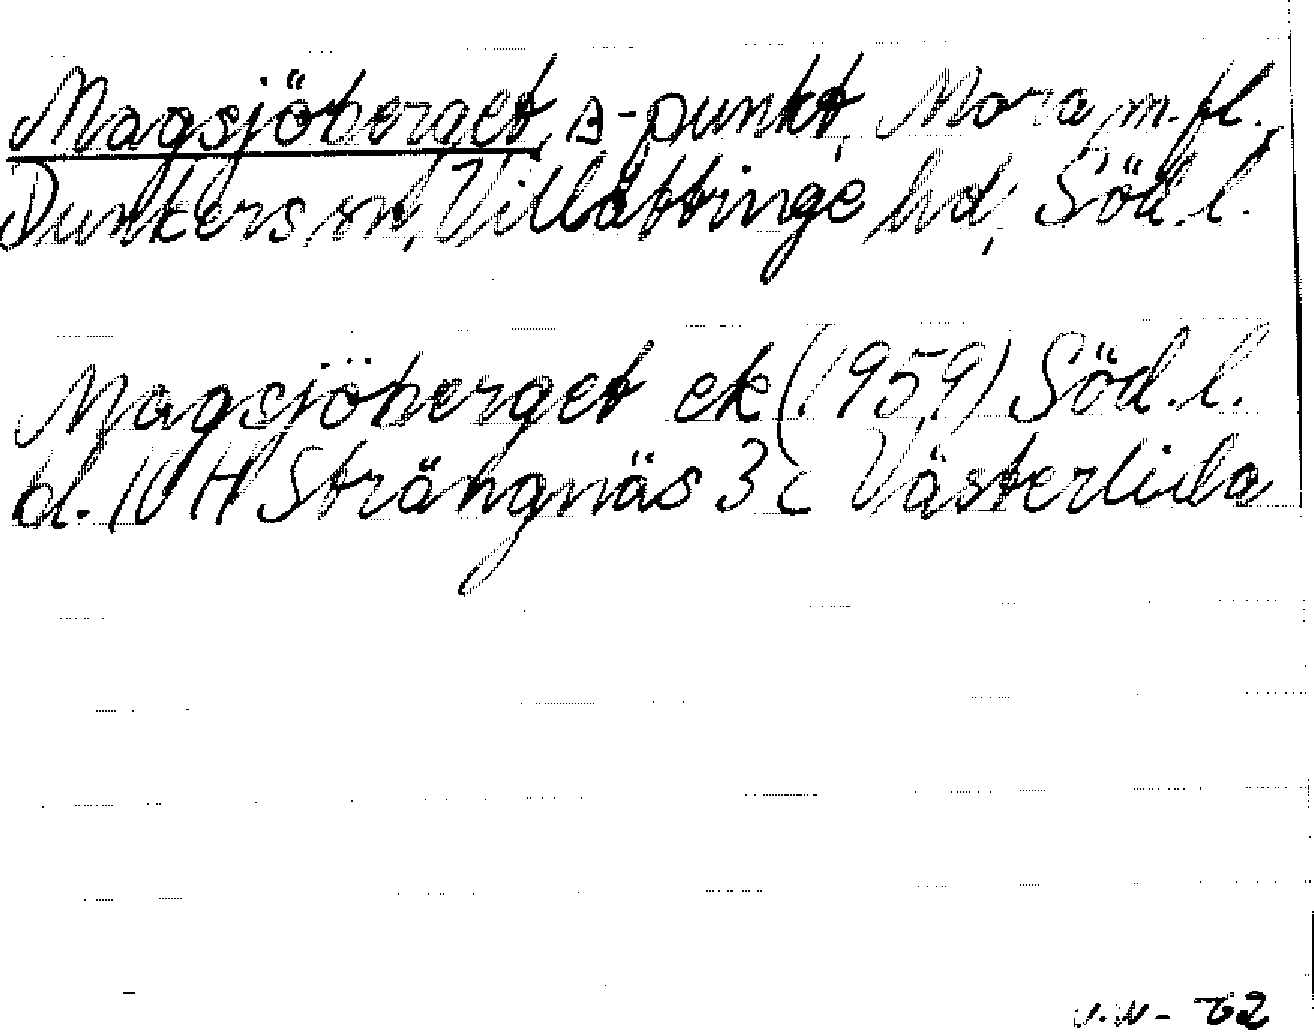 Magsjöberget, △-punkt, Mora m.fl.,
Dunkers sn, Villåttinge hd, Söd.l.
Magsjöberget ek (1959) Söd.l.
bl. 10 H Strängnäs 3 c Västerlida
-62